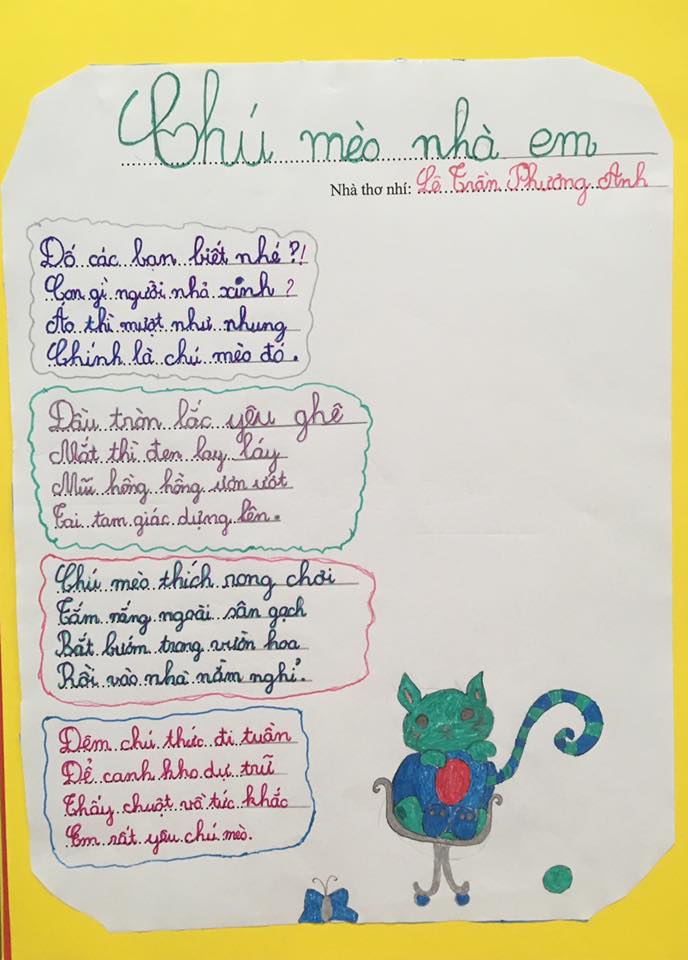 Chú mèo nhà em
Nhà thơ nhí: Lê Trần Phương Anh
Đố các bạn biết nhé?!
Con gì người nhỏ xinh?
Áo thì mượt như nhung
Chính là chú mèo đó.
Đầu tròn lắc yêu ghê
Mắt thì đen lay láy
Mũi hồng hồng ươn ướt
Tai tam giác dựng lên.
Chú mèo thích rong chơi
Tắm nắng ngoài sân gạch
Bắt bướm trong vườn hoa
Rồi vào nhà nằm nghỉ.
Đêm chú thức đi tuần
Để canh kho dự trữ
Thấy chuột vồ tức khắc
Em rất yêu chú mèo.